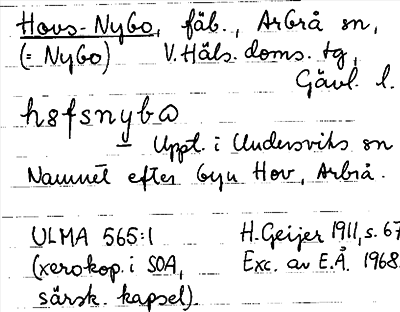 Hovs-Nybo, fäb., Arbrå sn,
(= Nybo) V. Häls. doms. tg,
Gävl. l.
Uppt. i Undersviks sn
Namnet efter byn Hov, Arbrå.
ULMA 565:1 H. Geijer 1911, s. 67
(xerokop. i SOA, Exc. av E.Å. 1968
särsk. kapsel).